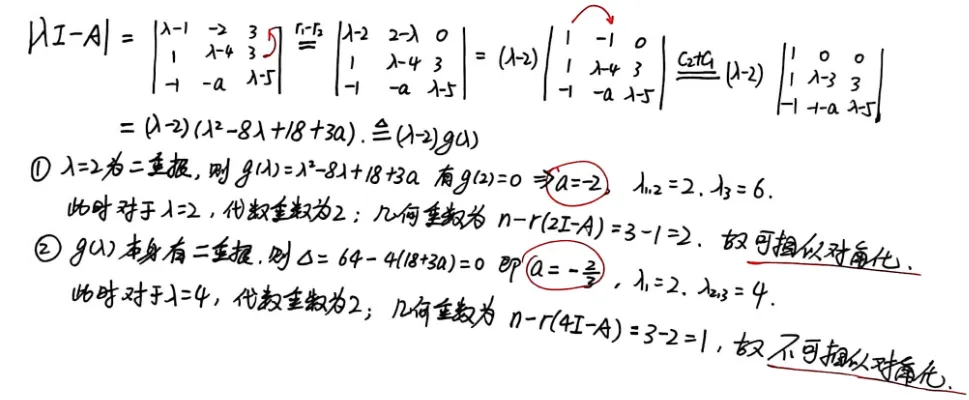 |λI-A| = |λ-1 -2 3; 1 λ-4 3; -1 -a λ-5| r₁-r₂ = |λ-2 2-λ 0; 1 λ-4 3; -1 -a λ-5| = (λ-2) |1 -1 0; 1 λ-4 3; -1 -a λ-5| c₂+c₁ = (λ-2) |1 0 0; 1 λ-3 3; -1 -1-a λ-5|
= (λ-2)(λ²-8λ+18+3a). ≜ (λ-2)g(λ)
① λ=2为二重根,则 g(λ)=λ²-8λ+18+3a 有g(2)=0 ⇒ a=-2, λ₁,₂=2. λ₃=6.
此时对于λ=2,代数重数为2;几何重数为 n-r(2I-A)=3-1=2. 故可相似对角化.
② g(λ)本身有二重根.则Δ=64-4(18+3a)=0 即 a=-2/3, λ₁=2. λ₂,₃=4.
此时对于λ=4,代数重数为2;几何重数为 n-r(4I-A)=3-2=1,故不可相似对角化.